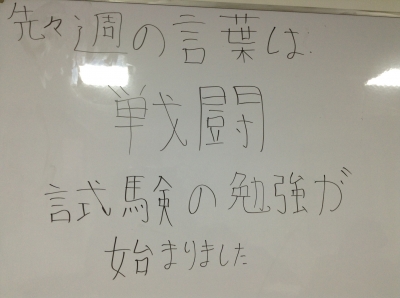 先々週の言葉は:
戦闘
試験の勉強が
始まりました